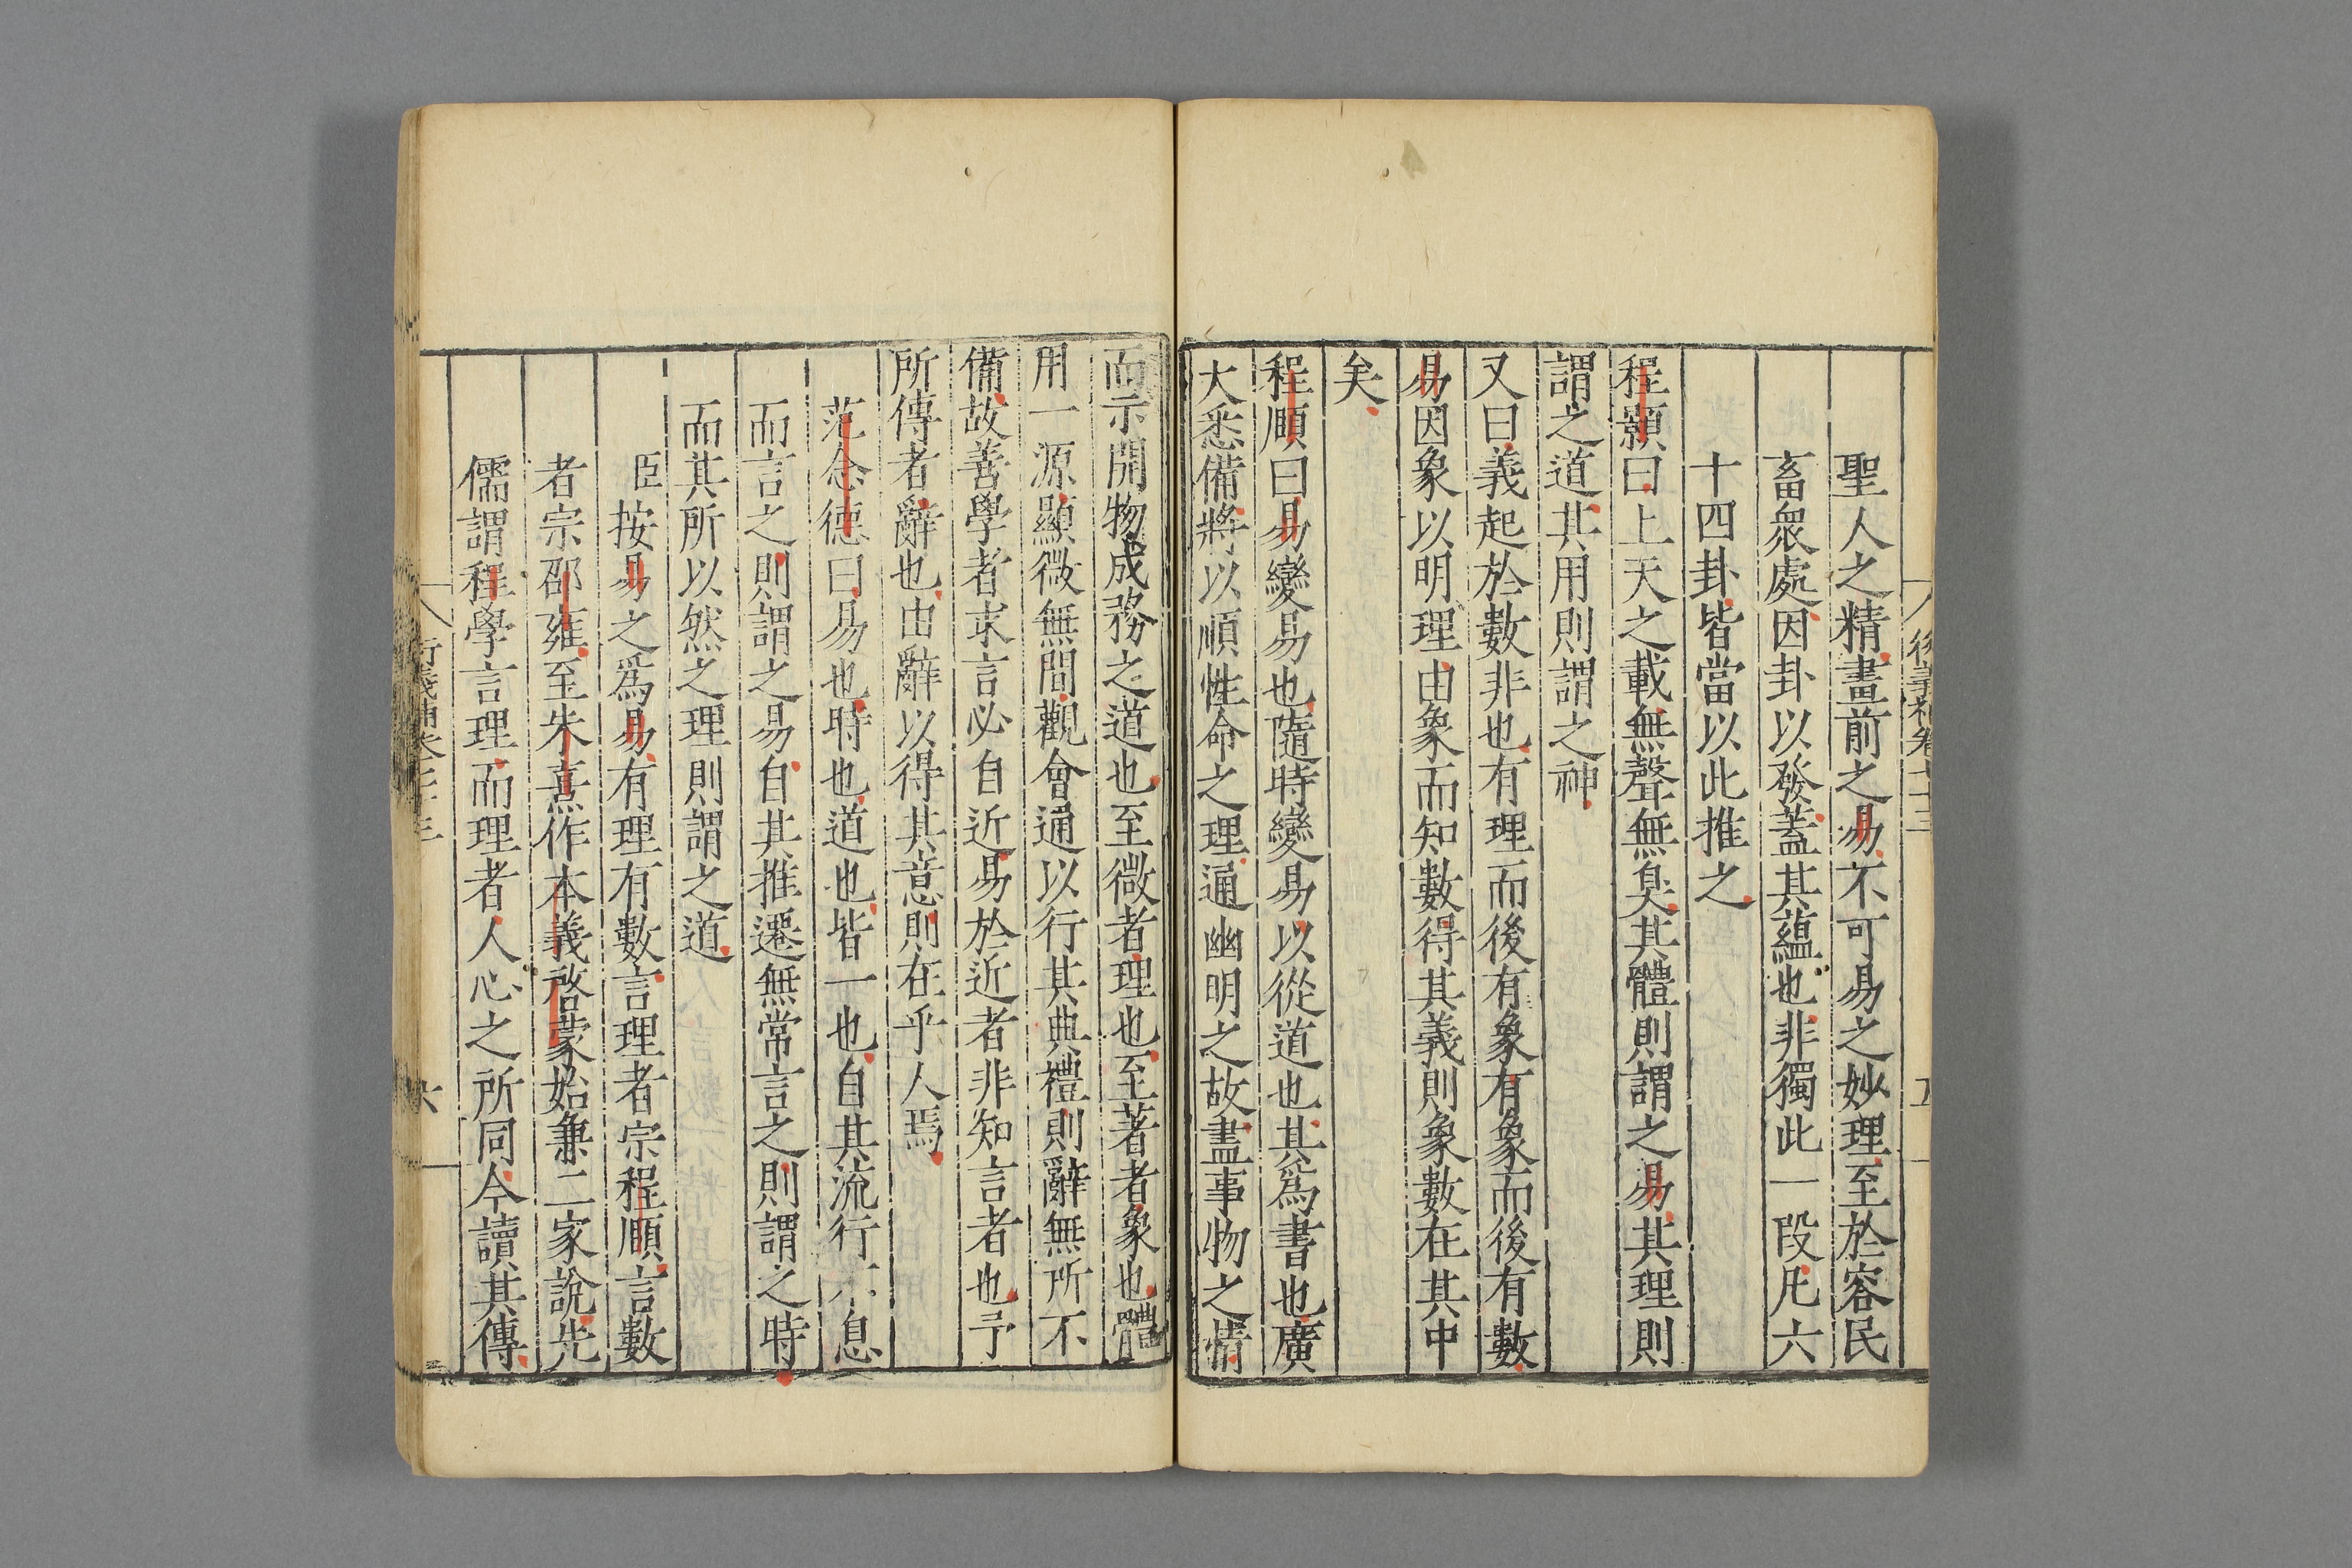 聖人之精畫前之易不可易之妙理至於容民
畜眾處因卦以發蓋其蘊也非獨此一段凡六
十四卦皆當以此推之
程顥曰上天之載無聲無臭其體則謂之易其理則
謂之道其用則謂之神
又曰義起於數非也有理而後有象有象而後有數
易因象以明理由象而知數得其義則象數在其中
矣
程頤曰易變易也隨時變易以從道也其為書也廣
大悉備將以順性命之理通幽明之故盡事物之情
而示開物成務之道也至微者理也至著者象也體
用一源顯微無間觀會通以行其典禮則辭無所不
備故善學者求言必自近易於近者非知言者也予
所傳者辭也由辭以得其意則在乎人焉
范念德曰易也時也道也皆一也自其流行不息
而言之則謂之易自其推遷無常言之則謂之時
而其所以然之理則謂之道
臣按易之為易有理有數言理者宗程頤言數
者宗邵雍至朱熹作本義啓蒙始兼二家說先
儒謂程學言理而理者人心之所同今讀其傳
六